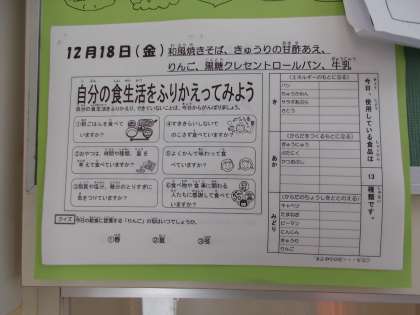 12月18日(金) 和風焼きそば、きゅうりの甘酢あえ、
りんご、黒糖クレセントロールパン、牛乳
自分の食生活をふりかえってみよう
自分の食生活をふりかえり、できていないことは、今日からがんばりましょう。
①朝ごはんを食べて
いますか？
④すききらいしないで
のこさず食べていますか？
②おやつは、時間や種類、量を
考えて食べていますか？
⑤よくかんで味わって食
べていますか？
③脂質や塩分、糖分のとりすぎに
気をつけていますか？
⑥食べ物や食事に関わる
人たちに感謝して食べて
いますか？
クイズ 今日の給食に登場する「りんご」の旬はいつでしょうか。
①春 ②夏 ③冬
今日、使用している食品は 13 種類です。
き
(エネルギーのもとになる)
パン
ちゅうかめん
サラダあぶら
さとう
あか
(からだをつくるもとになる)
ぎゅうにゅう
ぶたにく
みどり
(からだのちょうしをととのえる)
キャベツ
たまねぎ
ピーマン
にんじん
きゅうり
りんご